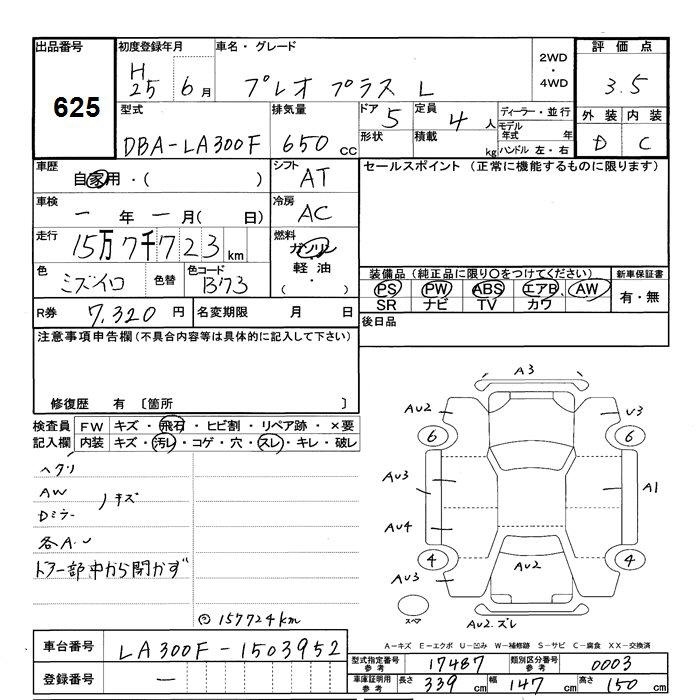 出品番号
625
初度登録年月
H25 6月
車名・グレード
プレオ プラス L
2WD・4WD
評価点
3.5
型式
DBA-LA300F
排気量
650 cc
ドア 5
形状
定員 4 人
積載 kg
ディーラー・並行
モデル年式 年
ハンドル 左・右
外装 内装
D C
車歴
自家用・( )
シフト
AT
セールスポイント (正常に機能するものに限ります)
車検
一 年 一 月( 日)
冷房
AC
走行
15万7千723 km
燃料
ガソリン
軽油
( ・ )
色
ミズイロ
色替
色コード
B73
装備品 (純正品に限り〇をつけてください)
PS PW ABS エアB AW
SR ナビ TV カワ
新車保証書
有・無
R券 7,320 円
名変期限 月 日
後日品
注意事項申告欄 (不具合内容等は具体的に記入して下さい)
修復歴 有 〔箇所 〕
検査員記入欄
FW キズ・飛石・ヒビ割・リペア跡・×要
内装 キズ・汚レ・コゲ・穴・スレ・キレ・破レ
ヘタリ
AW
Dミラー
キズ
各AU
ドアー部中から開かず
157724km
A3
AU2
U3
6
6
AU3
A1
AU4
4
4
AU2
AU3
スペア
AU2.ズレ
A-キズ E-エクボ U-凹み W-補修跡 S-サビ C-腐食 XX-交換済
車台番号
LA300F-1503952
登録番号
一
型式指定番号 参考
17487
類別区分番号 参考
0003
車庫証明用 参考
長さ 339 cm
幅 147 cm
高さ 150 cm